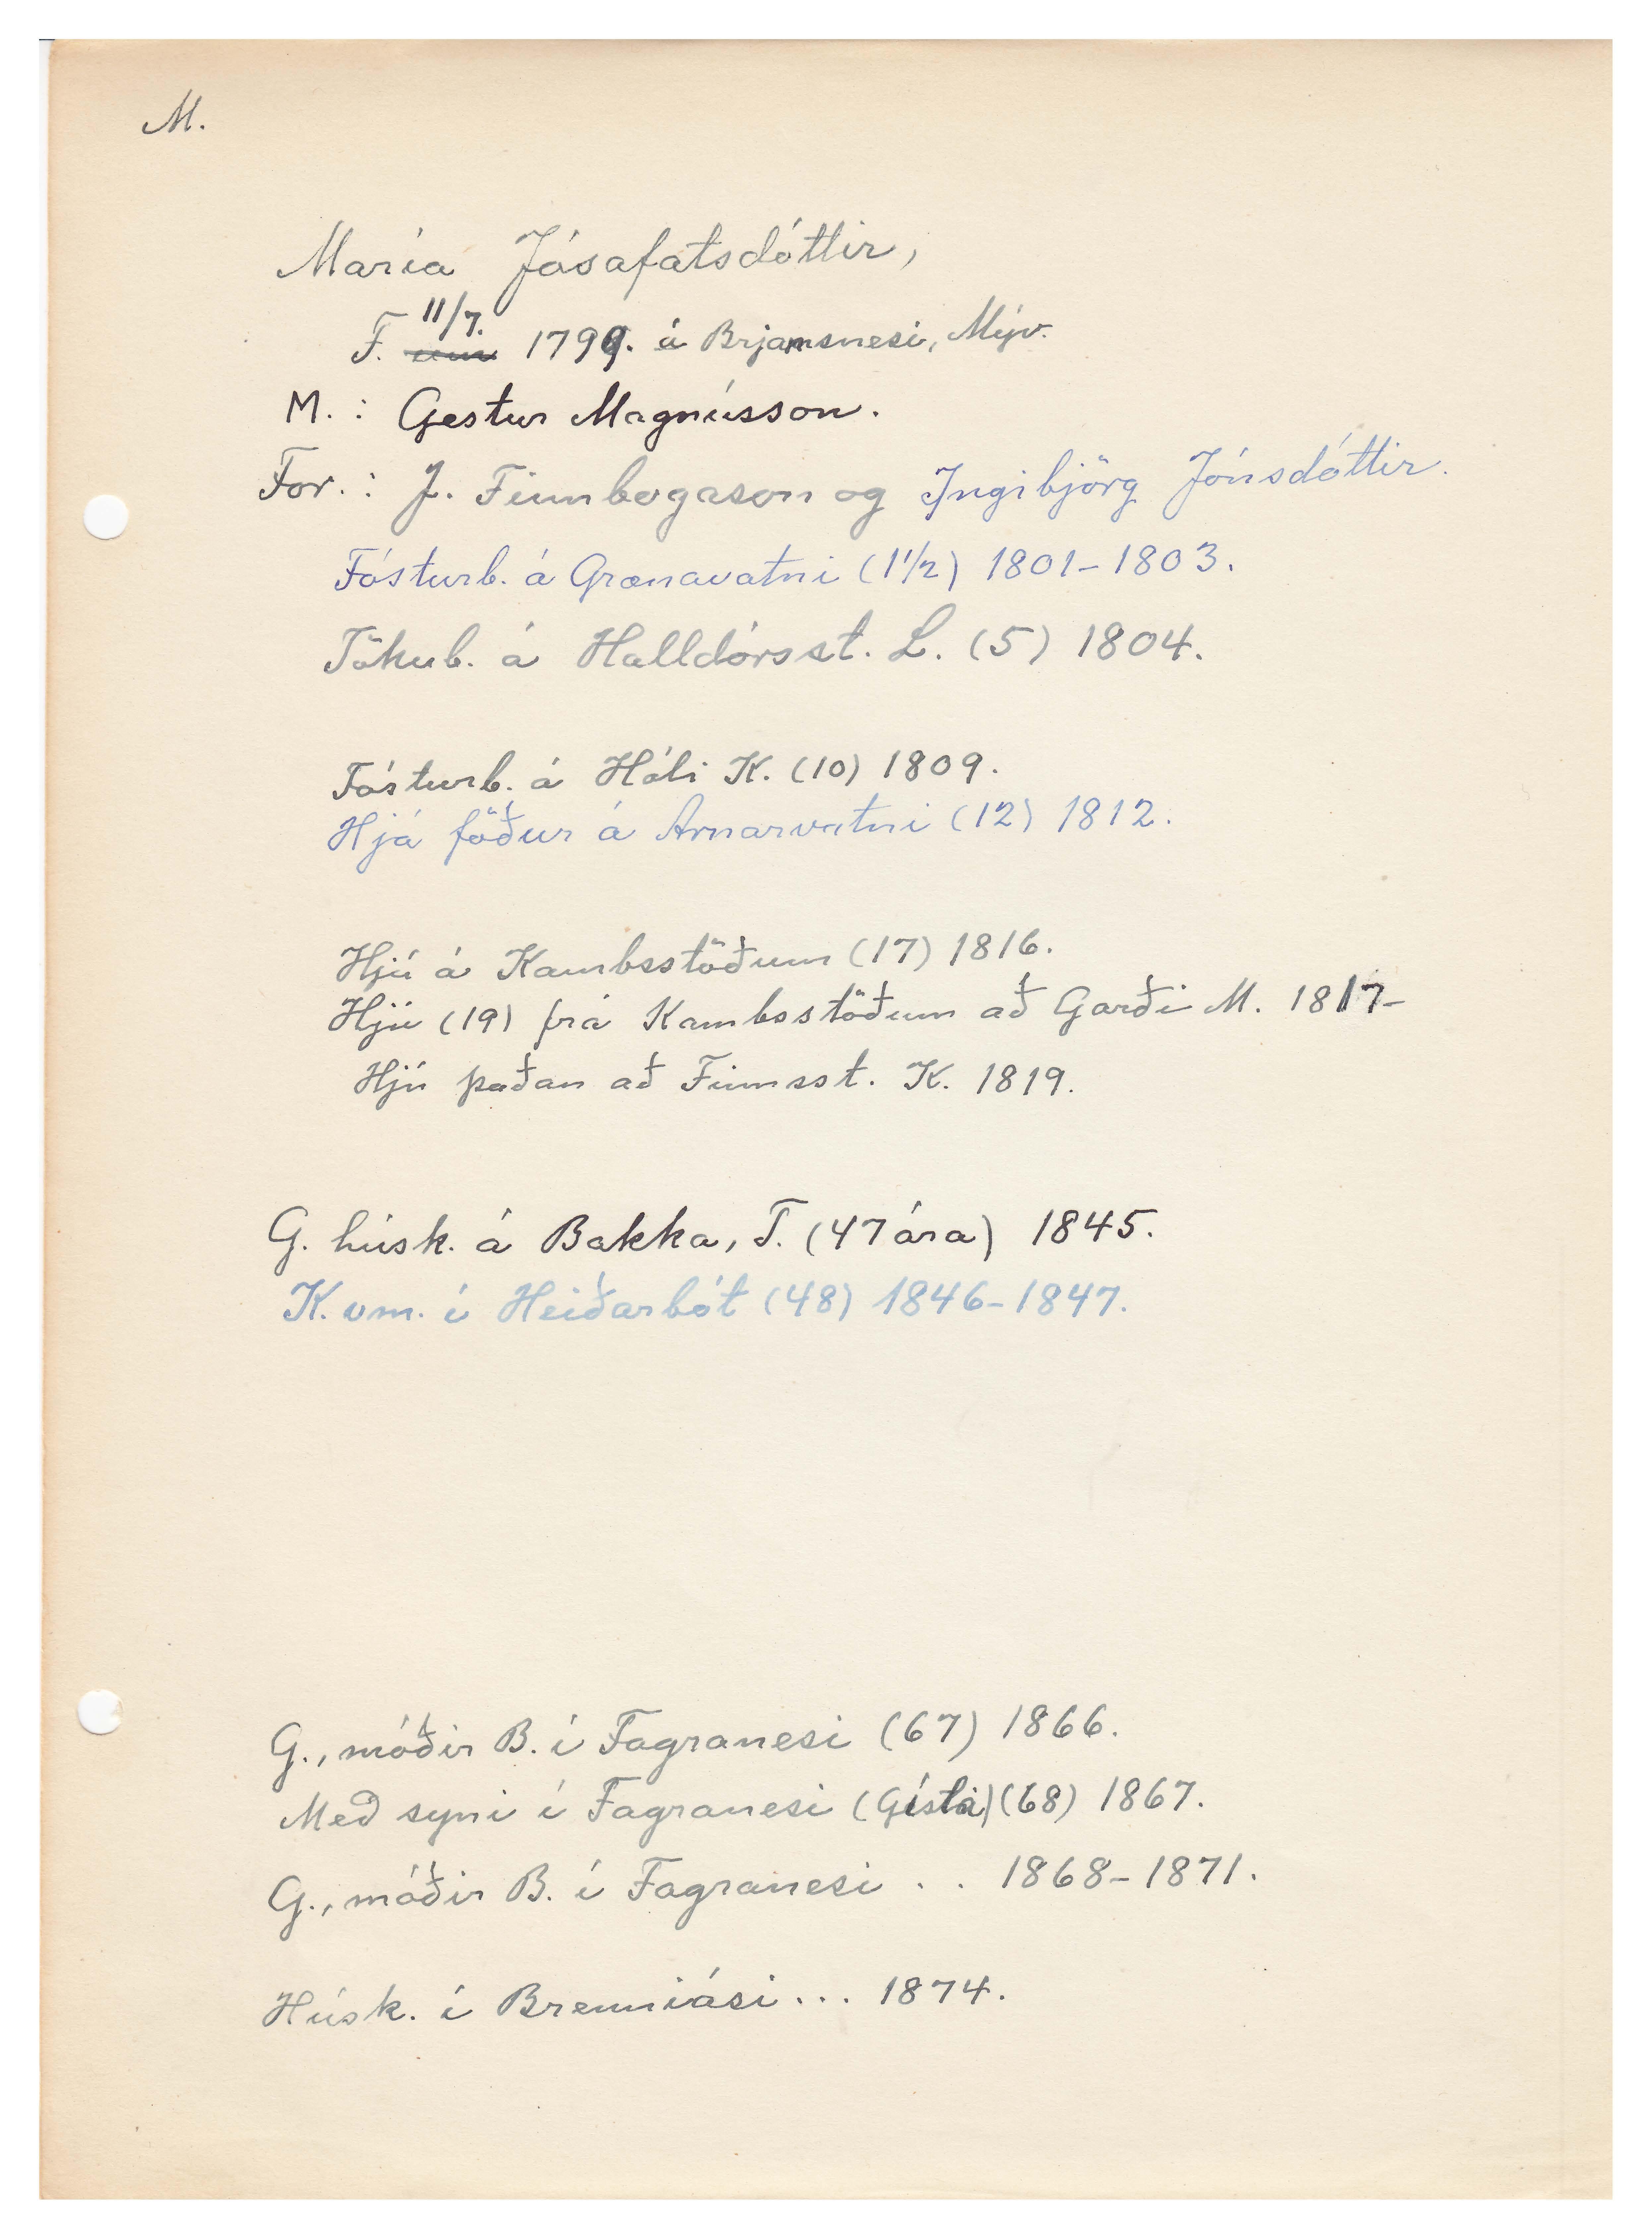 M.
María Jósafatsdóttir,
F. 11/7. 1799. á Brjamsnesi, Mýv.
M.: Gestur Magnússon.
For.: J. Finnbogason og Ingibjörg Jónsdóttir.
Fósturb. á Grænavatni (1 1/2) 1801-1803.
Tökub. á Halldórsst. L. (5) 1804.
Fósturb. á Hóli K. (10) 1809.
Hjá föður á Arnarvatni (12) 1812.
Hjú á Kambsstöðum (17) 1816.
Hjú (19) frá Kambsstöðum að Garði M. 1817-
Hjú þaðan að Finnsst. K. 1819.
G. húsk. á Bakka, T. (47 ára) 1845.
K. vm. í Heiðarbót (48) 1846-1847.
G., móðir B. í Fagranesi (67) 1866.
Með syni í Fagranesi (Gísla) (68) 1867.
G., móðir B. í Fagranesi . . 1868-1871.
Húsk. í Brenniási... 1874.